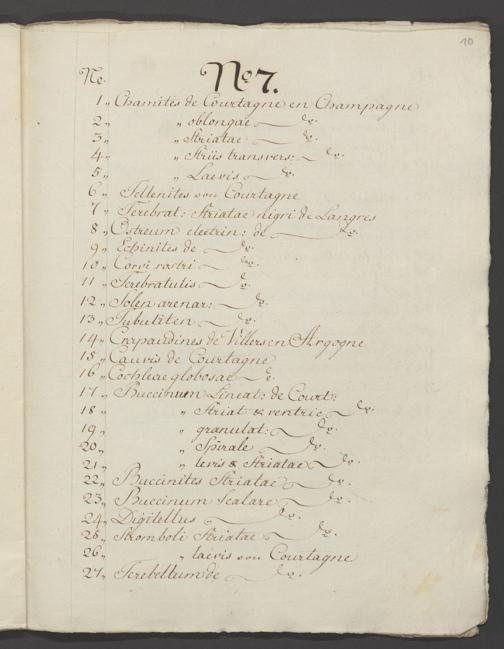 10
No. No 7.
1 „ Chamites de Courtagne en Champagne
2 „ „ oblongae do.
3 „ „ Striatae do.
4 „ „ Striis transvers: do.
5 „ „ Laevis do.
6 „ Tellenites von Courtagne
7 „ Terebrat: Striatae nigri de Langres
8 „ Ostreum electrin: de do.
9 „ Echinites de do.
10 „ Corvi rostri do.
11 „ Terebratulis do.
12 „ Solen arenar: do.
13 „ Tubuliten do.
14 „ Crapaudines de Villers en Argogne
15 „ Cauris de Courtagne
16 „ Cochleae globosae do.
17 „ Buccinum Lineat: de Court:
18 „ „ Striat & ventric do.
19 „ „ granulat: do.
20 „ „ Spirale do.
21 „ „ levis & Striatae do.
22 „ Buccinites Striatae do.
23 „ Buccinum Scalare do.
24 „ Digitellus do.
25 „ Stromboli Striatae do.
26 „ „ laevis von Courtagne
27 „ Terebellum de do.